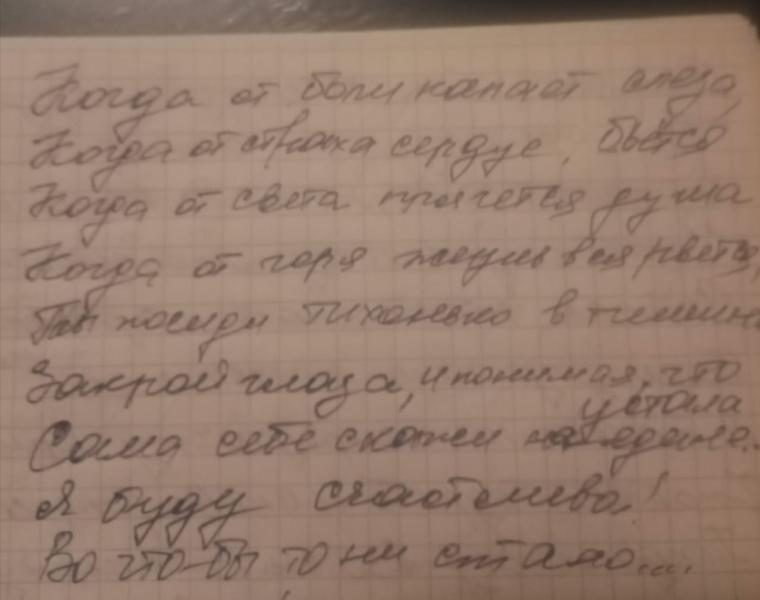 Когда от боли капает слеза,
Когда от страха сердце, бьётся
Когда от света прячется душа
Когда от горя жизнь вся рвется,
Ты посиди тихонько в тишине
Закрой глаза, и понимая, что
устала
Сама себе скажи наедине.
Я буду счастлива!
Во что-бы то ни стало...